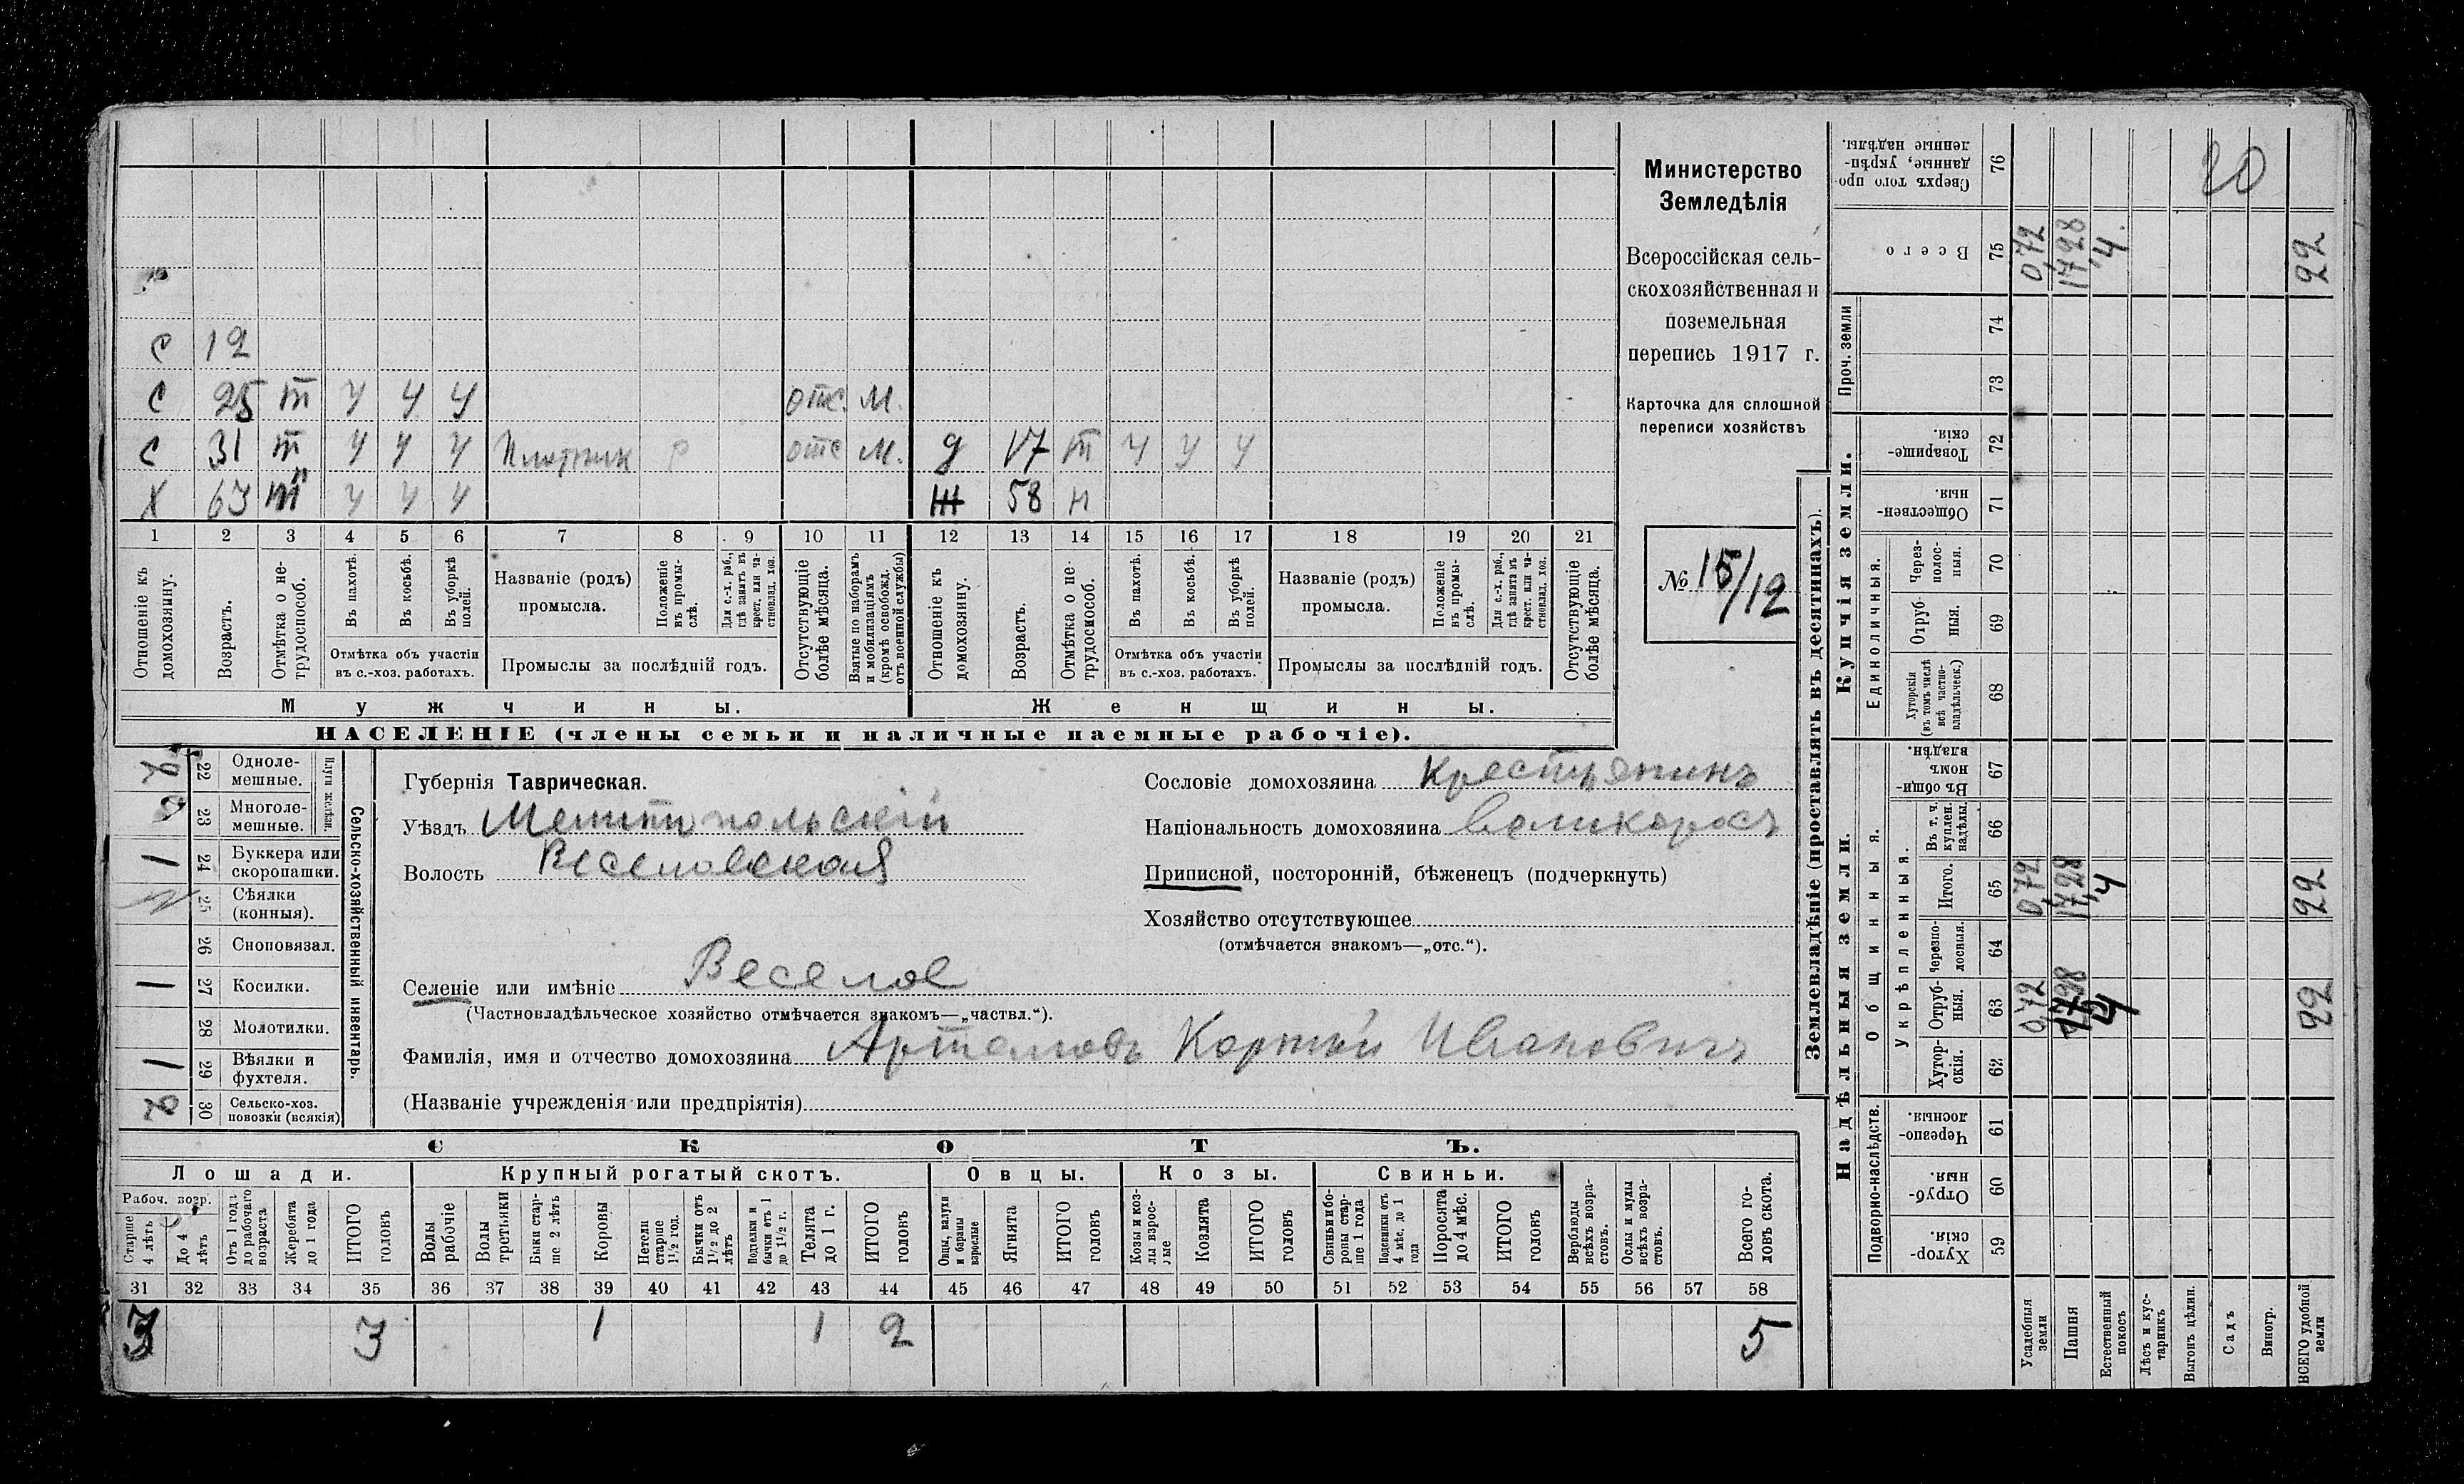 С 12
С 25 т у у у отс. м.
С 31 т у у у Плотник р отс м. д 17 т у у у
Х 63 т у у у Ж 58 н
1 2 3 4 5 6 7 8 9 10 11 12 13 14 15 16 17 18 19 20 21
Отношеніе къ домохозяину.
Возрастъ.
Отмѣтка о не-
трудоспособ.
Въ пахотѣ.
Въ косьбѣ.
Въ уборкѣ полей.
Отмѣтка объ участіи
въ с.-хоз. работахъ.
Названіе (родъ)
промысла.
Положеніе въ промы-
слѣ.
Для с.-х. раб., гдѣ занятъ въ крест. или ча-
стновлад. хоз.
Промыслы за послѣдній годъ.
Отсутствующіе
болѣе мѣсяца.
Взятые по наборамъ
и мобилизаціямъ
(кромѣ освобожд.
отъ военной службы)
Отношеніе къ
домохозяину.
Возрастъ.
Отмѣтка о не-
трудоспособ.
Въ пахотѣ.
Въ косьбѣ.
Въ уборкѣ полей.
Отмѣтка объ участіи
въ с.-хоз. работахъ.
Названіе (родъ)
промысла.
Положеніе въ промы-
слѣ.
Для с.-х. раб., гдѣ занята въ крест. или ча-
стновлад. хоз.
Промыслы за послѣдній годъ.
Отсутствующіе
болѣе мѣсяца.
Мужчины.
Женщины.
НАСЕЛЕНІЕ (члены семьи и наличные наемные рабочіе).
Министерство
Земледѣлія
Всероссійская сель-
скохозяйственная и
поземельная
перепись 1917 г.
Карточка для сплошной
переписи хозяйствъ
№ 15/12
Сельско-хозяйственный инвентарь.
Плуги желѣзн.
22 Одноле-
мешные.
23 Многоле-
мешные.
1 24 Буккера или
скоропашки.
25 Сѣялки
(конныя).
26 Сноповязал.
1 27 Косилки.
28 Молотилки.
1 29 Вѣялки и
фухтеля.
2 30 Сельско-хоз.
повозки (всякія)
Губернія Таврическая.
Уѣздъ Мелитопольскій
Волость Веселовская
Селеніе или имѣніе Веселое
(Частновладѣльческое хозяйство отмѣчается знакомъ—„частвл.“).
Фамилія, имя и отчество домохозяина Артамовъ Карпъй Ивановичъ
(Названіе учрежденія или предпріятія)
Сословіе домохозяина Крестьянинъ
Національность домохозяина Великоросъ
Приписной, посторонній, бѣженецъ (подчеркнуть)
Хозяйство отсутствующее
(отмѣчается знакомъ—„отс.“).
СКОТЪ.
Лошади. Крупный рогатый скотъ. Овцы. Козы. Свиньи.
Рабоч. возр.
Старше
4 лѣтъ
До 4
лѣтъ
Отъ 1 года
до рабочаго
возраста
Жеребята
до 1 года
ИТОГО
головъ
Волы
рабочіе
Волы
третьяки
Быки стар-
ше 2 лѣтъ
Коровы
Нетели
старше
1½ год.
Бычки отъ
1½ до 2
лѣтъ
Подтелки и
бычки отъ 1
до 1½ г.
Телята
до 1 г.
ИТОГО
головъ
Овцы, валухи
и бараны
взрослые
Ягнята
ИТОГО
головъ
Козы и коз-
лы взрос-
лые
Козлята
ИТОГО
головъ
Свиньи и бо-
ровы стар-
ше 1 года
Подсвинки отъ
4 мѣс. до 1
года
Поросята
до 4 мѣс.
ИТОГО
головъ
Верблюды
всѣхъ возра-
стовъ.
Ослы и мулы
всѣхъ возра-
стовъ.
Всего го-
ловъ скота.
31 32 33 34 35 36 37 38 39 40 41 42 43 44 45 46 47 48 49 50 51 52 53 54 55 56 57 58
3 3 1 1 2 5
Землевладѣніе (проставлять въ десятинахъ).
Надѣльныя земли.
Купчія земли.
Проч. земли
Подворно-наслѣдств.
Общинныя.
Укрѣпленныя.
Единоличныя.
Сверхъ того про
данные, укрѣп-
ленные надѣлы.
76
20
Всего
75
0,72 17,28 4. 22
74
73
Товарище-
скія.
72
Обществен-
ныя.
71
Через-
полос-
ныя.
70
Отруб-
ныя.
69
Хуторскія
(въ томъ числѣ
всѣ частно-
владѣльческ.)
68
Въ общин-
номъ
владѣн.
67
Въ т. ч.
куплен.
надѣлы.
66
Итого.
65
0,72 17,28 4 22
Черезпо-
лосныя.
64
Отруб-
ныя.
63
0,72 17,28 4 22
Хутор-
скія.
62
Черезпо-
лосныя.
61
Отруб-
ныя.
60
Хутор-
скія.
59
Усадебныя
земли
Пашня
Естественный
покосъ
Лѣсъ и кус-
тарникъ
Выгонъ цѣлин.
Садъ
Виногр.
ВСЕГО удобной
земли